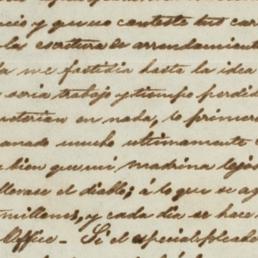 cio y que no conteste tus car
la escritura de arrendamiento
a me fastidia hasta la idea
seria trabajo y tiempo perdid
en nada, lo primero
anado mucho ultimamente
bien que mi madrina lejos
llevase el diablo; á lo que se ag
millems, y cada dia se hace
Office - Si el